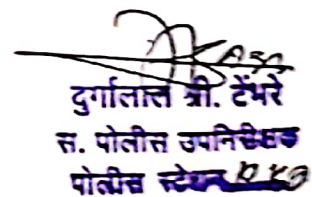 दुर्गालाल श्री. टेंभरे
स. पोलीस उपनिरीक्षक
पोलीस स्टेशन